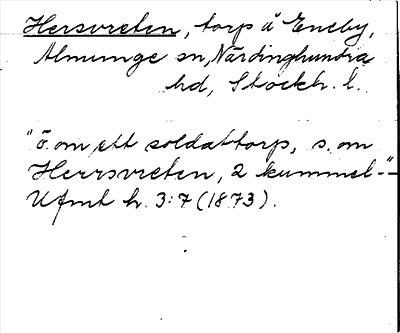 Hersvreten, torp å Eneby,
Almunge sn, Närdinghundra
hd, Stockh. l.
"ö. om ett soldattorp, s. om
Herrsvreten, 2 kummel-"
Ufmt h. 3:7 (1873).